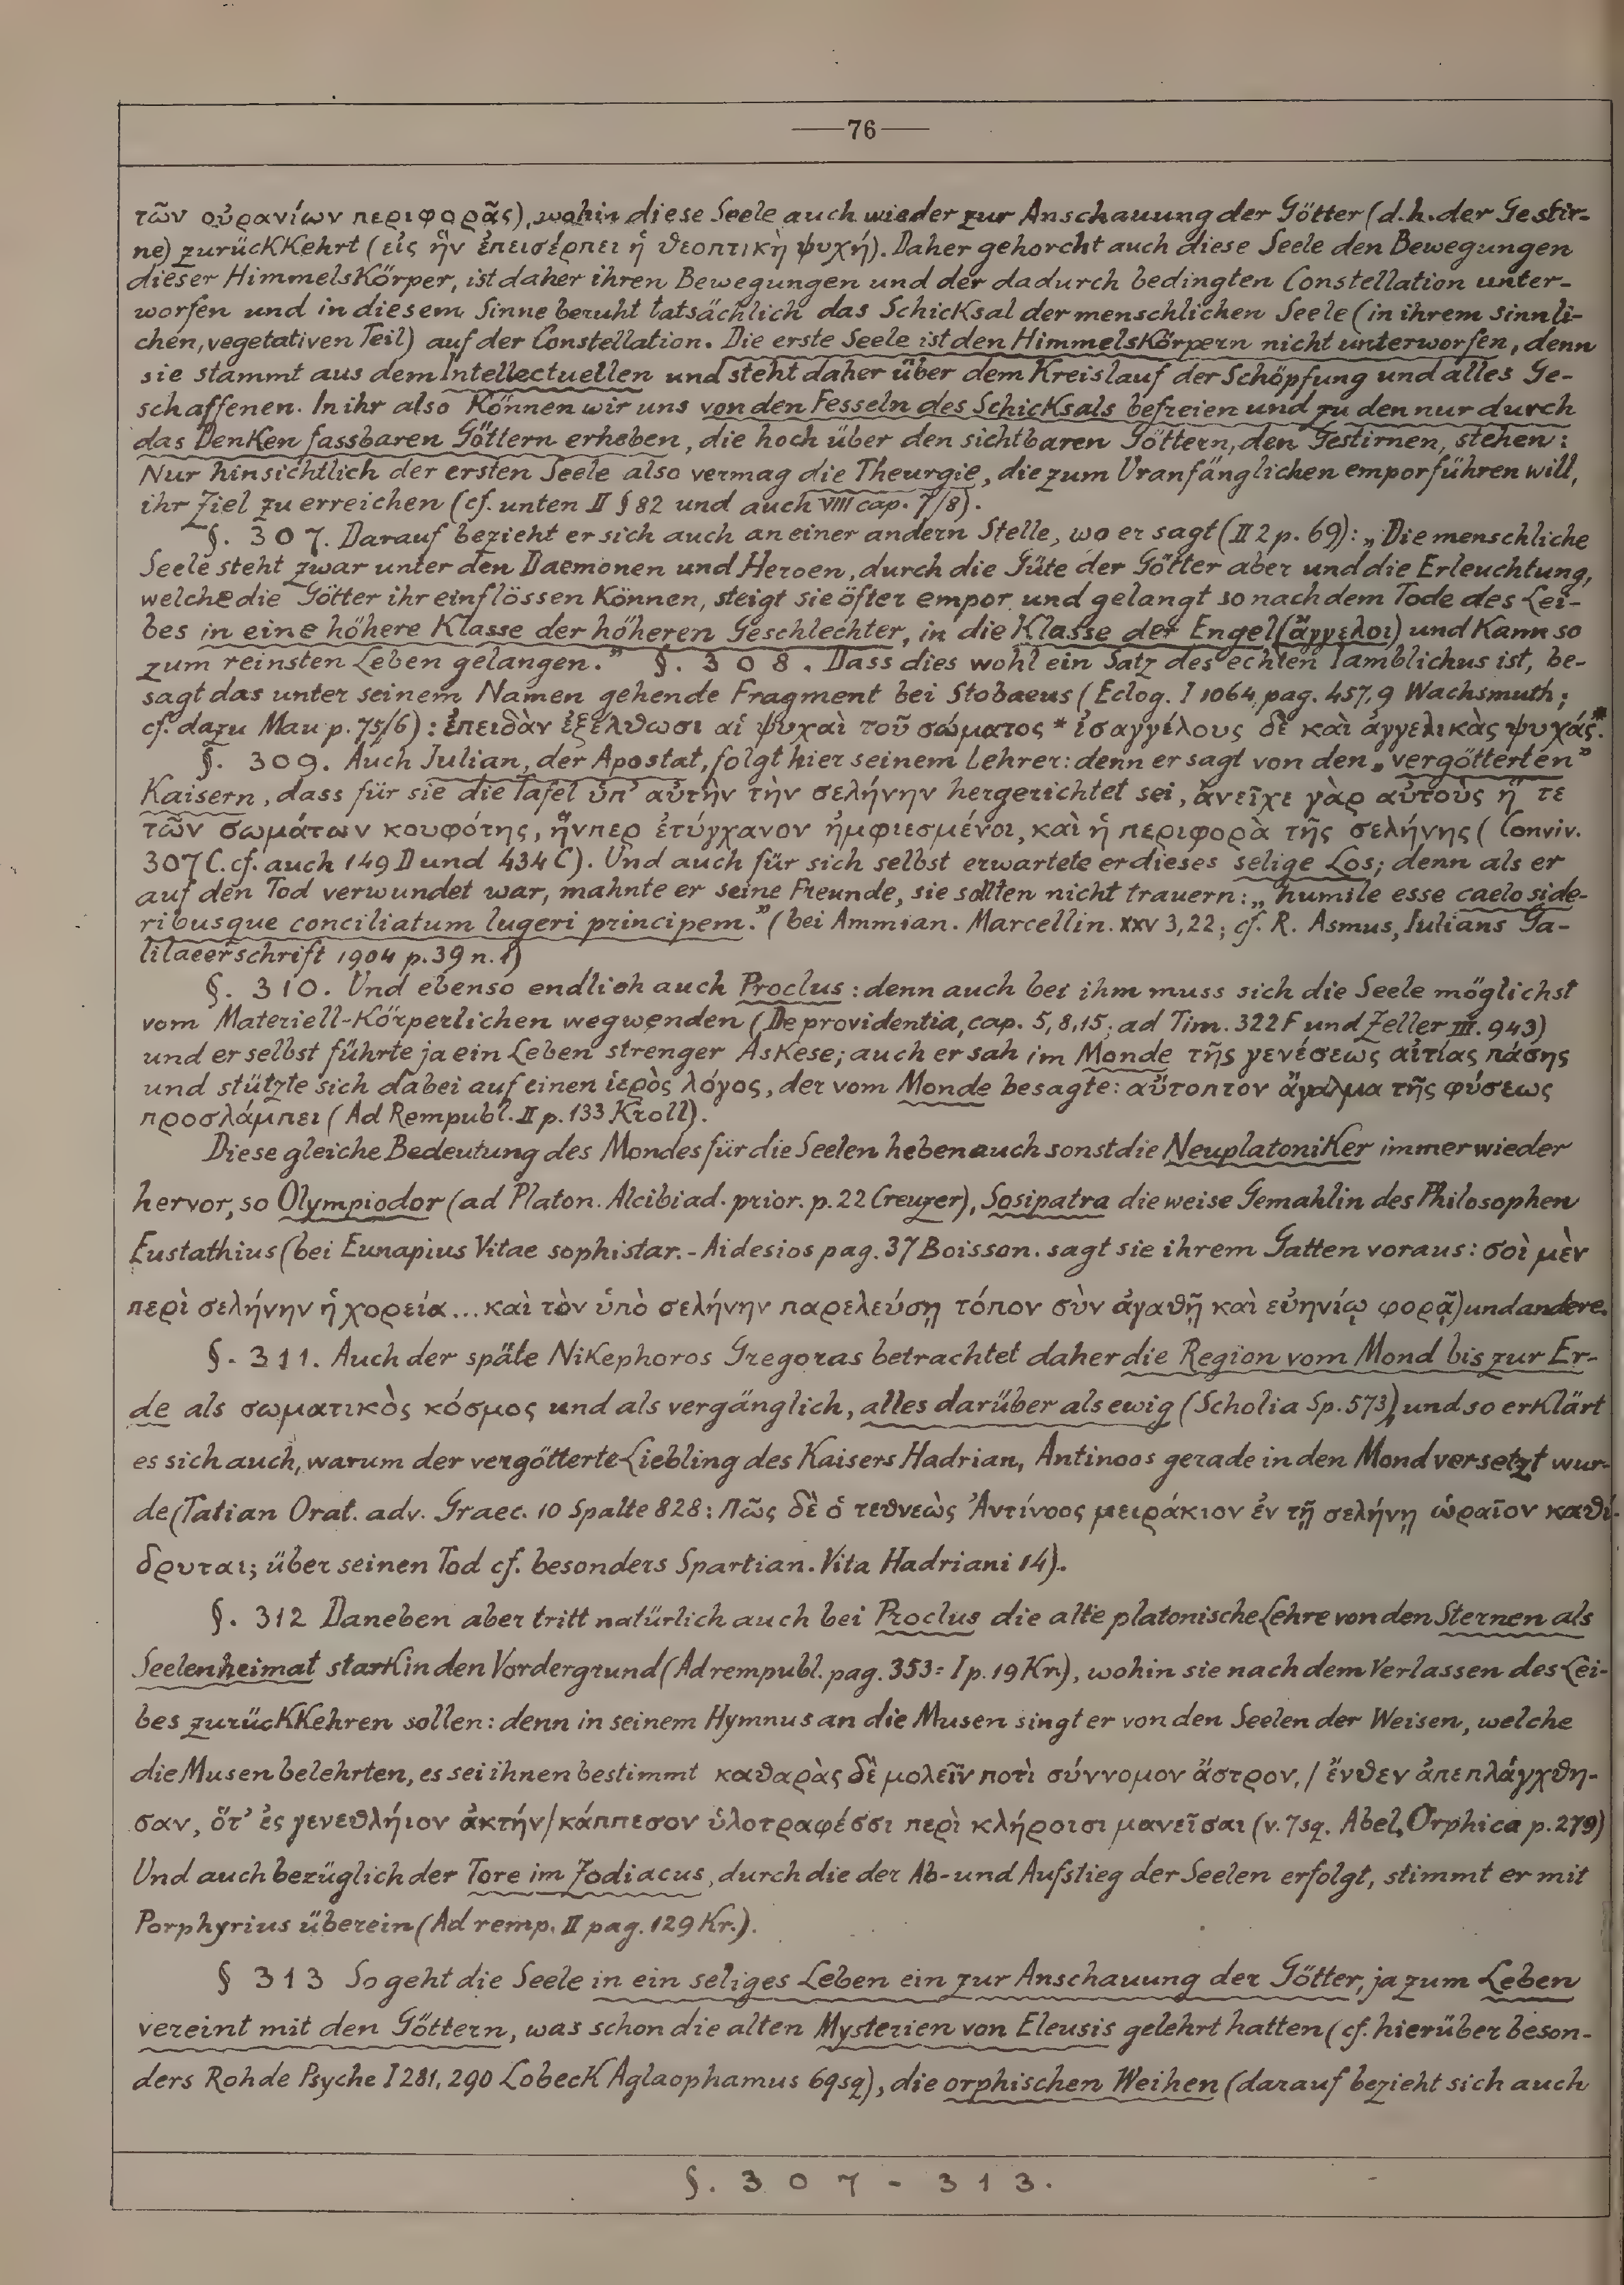 —76—
τῶν οὐρανίων περιφορᾶς), wohin diese Seele auch wieder zur Anschauung der Götter (d.h. der Gestir-
ne) zurückkehrt (εἰς ἣν ἐπεισέρπει ἡ θεοπτικὴ ψυχή). Daher gehorcht auch diese Seele den Bewegungen
dieser Himmelskörper, ist daher ihren Bewegungen und der dadurch bedingten Constellation unter-
worfen und in diesem Sinne beruht tatsächlich das Schicksal der menschlichen Seele (in ihrem sinnli-
chen, vegetativen Teil) auf der Constellation. Die erste Seele ist den Himmelskörpern nicht unterworfen, denn
sie stammt aus dem Intellectuellen und steht daher über dem Kreislauf der Schöpfung und alles Ge-
schaffenen. In ihr also können wir uns von den Fesseln des Schicksals befreien und zu den nur durch
das Denken fassbaren Göttern erheben, die hoch über den sichtbaren Göttern, den Gestirnen, stehen:
Nur hinsichtlich der ersten Seele also vermag die Theurgie, die zum Uranfänglichen emporführen will,
ihr Ziel zu erreichen (cf. unten II § 82 und auch VIII cap. 7/8).
§. 307. Darauf bezieht er sich auch an einer andern Stelle, wo er sagt (II 2 p. 69): „Die menschliche
Seele steht zwar unter den Daemonen und Heroen, durch die Güte der Götter aber und die Erleuchtung,
welche die Götter ihr einflössen können, steigt sie öfter empor und gelangt so nach dem Tode des Lei-
bes in eine höhere Klasse der höheren Geschlechter, in die Klasse der Engel (ἄγγελοι) und kann so
zum reinsten Leben gelangen.” §. 308. Dass dies wohl ein Satz des echten Iamblichus ist, be-
sagt das unter seinem Namen gehende Fragment bei Stobaeus (Eclog. I 1064, pag. 457,9 Wachsmuth;
cf. dazu Mau p. 75/6): ἐπειδὰν ἐξέλθωσι αἱ ψυχαὶ τοῦ σώματος * ἰσαγγέλους δὲ καὶ ἀγγελικὰς ψυχάς*.
§. 309. Auch Julian, der Apostat, folgt hier seinem Lehrer: denn er sagt von den „vergötterten”
Kaisern, dass für sie die Tafel ὑπ’ αὐτὴν τὴν σελήνην hergerichtet sei, ἀνεῖχε γὰρ αὐτοὺς ἥ τε
τῶν σωμάτων κουφότης, ἥνπερ ἐτύγχανον ἠμφιεσμένοι, καὶ ἡ περιφορὰ τῆς σελήνης (Conviv.
307 C. cf. auch 149 D und 434 C). Und auch für sich selbst erwartete er dieses selige Los; denn als er
auf den Tod verwundet war, mahnte er seine Freunde, sie sollten nicht trauern: „humile esse caelo side-
ribusque conciliatum lugeri principem.” (bei Ammian. Marcellin. XXV 3,22; cf. R. Asmus, Iulians Ga-
lilaeerschrift 1904 p. 39 n. 1)
§. 310. Und ebenso endlich auch Proclus: denn auch bei ihm muss sich die Seele möglichst
vom Materiell-Körperlichen wegwenden (De providentia, cap. 5, 8, 15; ad Tim. 322 F und Zeller III. 943)
und er selbst führte ja ein Leben strenger Askese; auch er sah im Monde τῆς γενέσεως αἰτίας πάσης
und stützte sich dabei auf einen ἱερὸς λόγος, der vom Monde besagte: αὔτοπτον ἄγαλμα τῆς φύσεως
προσλάμπει (Ad Rempubl. II p. 133 Kroll).
Diese gleiche Bedeutung des Mondes für die Seelen heben auch sonst die Neuplatoniker immer wieder
hervor, so Olympiodor (ad Platon. Alcibiad. prior. p. 22 Creuzer), Sosipatra die weise Gemahlin des Philosophen
Eustathius (bei Eunapius Vitae sophistar. - Aidesios pag. 37 Boisson. sagt sie ihrem Gatten voraus: σοὶ μὲν
περὶ σελήνην ἡ χορεία... καὶ τὸν ὑπὸ σελήνην παρελεύσῃ τόπον σὺν ἀγαθῇ καὶ εὐηνίῳ φορᾷ) und andere.
§. 311. Auch der späte Nikephoros Gregoras betrachtet daher die Region vom Mond bis zur Er-
de als σωματικὸς κόσμος und als vergänglich, alles darüber als ewig (Scholia Sp. 573), und so erklärt
es sich auch, warum der vergötterte Liebling des Kaisers Hadrian, Antinoos gerade in den Mond versetzt wur-
de (Tatian Orat. adv. Graec. 10 Spalte 828: Πῶς δὲ ὁ τεθνεὼς Ἀντίνοος μειράκιον ἐν τῇ σελήνῃ ὡραῖον καθί-
δρυται; über seinen Tod cf. besonders Spartian. Vita Hadriani 14).
§. 312 Daneben aber tritt natürlich auch bei Proclus die alte platonische Lehre von den Sternen als
Seelenheimat stark in den Vordergrund (Ad rempubl. pag. 353 = I p. 19 Kr.), wohin sie nach dem Verlassen des Lei-
bes zurückkehren sollen: denn in seinem Hymnus an die Musen singt er von den Seelen der Weisen, welche
die Musen belehrten, es sei ihnen bestimmt καθαρὰς δὲ μολεῖν ποτὶ σύννομον ἄστρον, / ἔνθεν ἀπεπλάγχθη-
σαν, ὅτ’ ἐς γενεθλήιον ἀκτήν / κάππεσον ὑλοτραφέσσι περὶ κλήροισι μανεῖσαι (v. 7 sq. Abel, Orphica p. 279)
Und auch bezüglich der Tore im Zodiacus, durch die der Ab- und Aufstieg der Seelen erfolgt, stimmt er mit
Porphyrius überein (Ad remp. II pag. 129 Kr.).
§ 313 So geht die Seele in ein seliges Leben ein zur Anschauung der Götter, ja zum Leben
vereint mit den Göttern, was schon die alten Mysterien von Eleusis gelehrt hatten (cf. hierüber beson-
ders Rohde Psyche I 281, 290 Lobeck Aglaophamus 69 sq), die orphischen Weihen (darauf bezieht sich auch
§. 307 - 313.